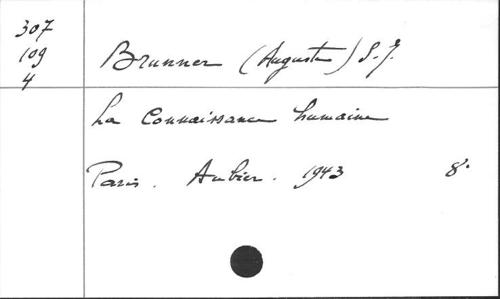 307
109
4
Brunner (Auguste) S. J.
La Connaissance humaine
Paris. Aubier. 1943 8°